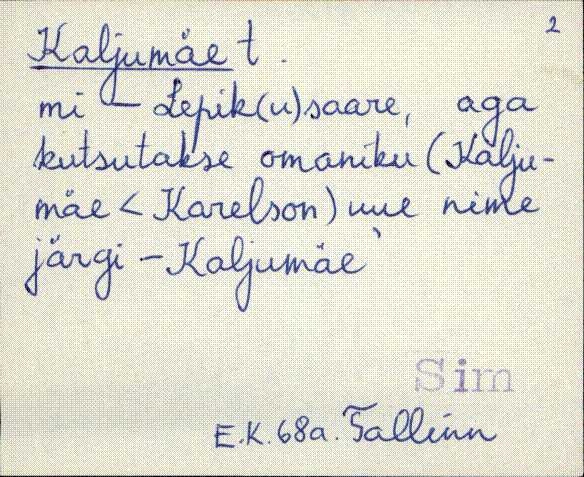 2
Kaljumäe t.
mi – Lepik(u)saare, aga
kutsutakse omaniku (Kalju-
mäe < Karelson) uue nime
järgi – Kaljumäe'
Sim
E.K. 68a. Tallinn